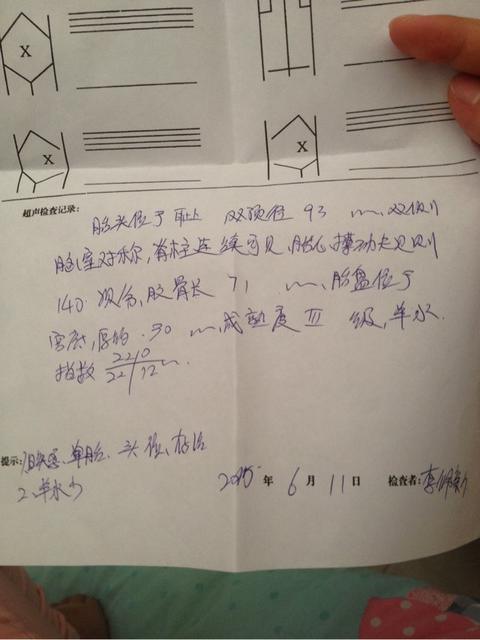 X
X
X
超声检查记录:
胎头位于耻上 双顶径 93 mm, 双侧
脑室对称, 脊柱连续可见, 胎心搏动规则
140 次/分, 股骨长 71 mm, 胎盘位于
宫底, 厚约 30 mm, 成熟度 III 级, 羊水
指数 22/0 22/12 mm.
提示: 晚孕、单胎、头位、存活
2、羊水少
2015 年 6 月 11 日 检查者: 李